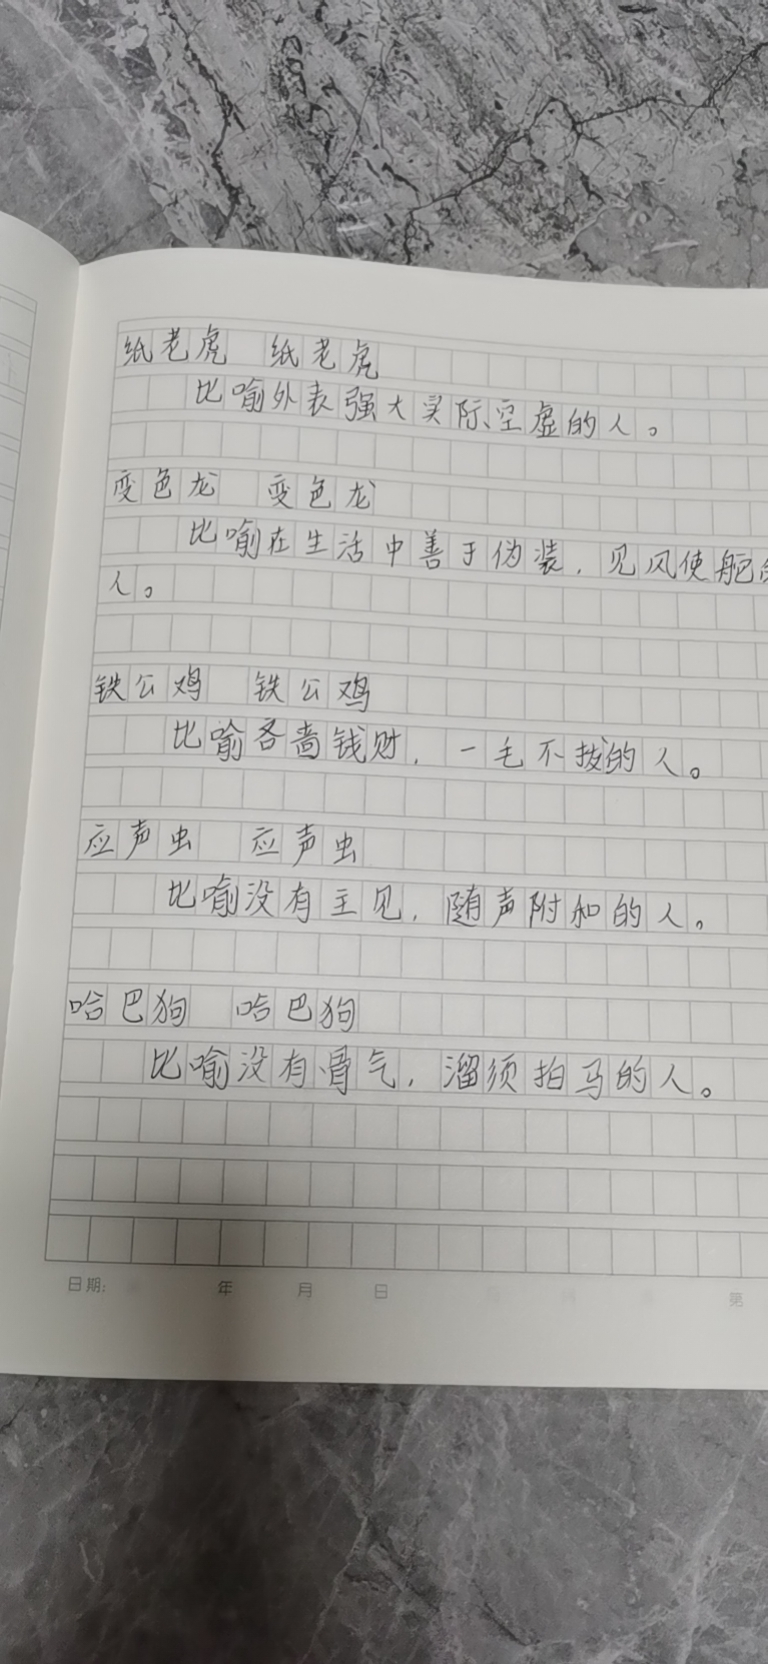 纸老虎 纸老虎
比喻外表强大实际空虚的人。
变色龙 变色龙
比喻在生活中善于伪装，见风使舵的
人。
铁公鸡 铁公鸡
比喻吝啬钱财，一毛不拔的人。
应声虫 应声虫
比喻没有主见，随声附和的人。
哈巴狗 哈巴狗
比喻没有骨气，溜须拍马的人。
日期: 年 月 日 第